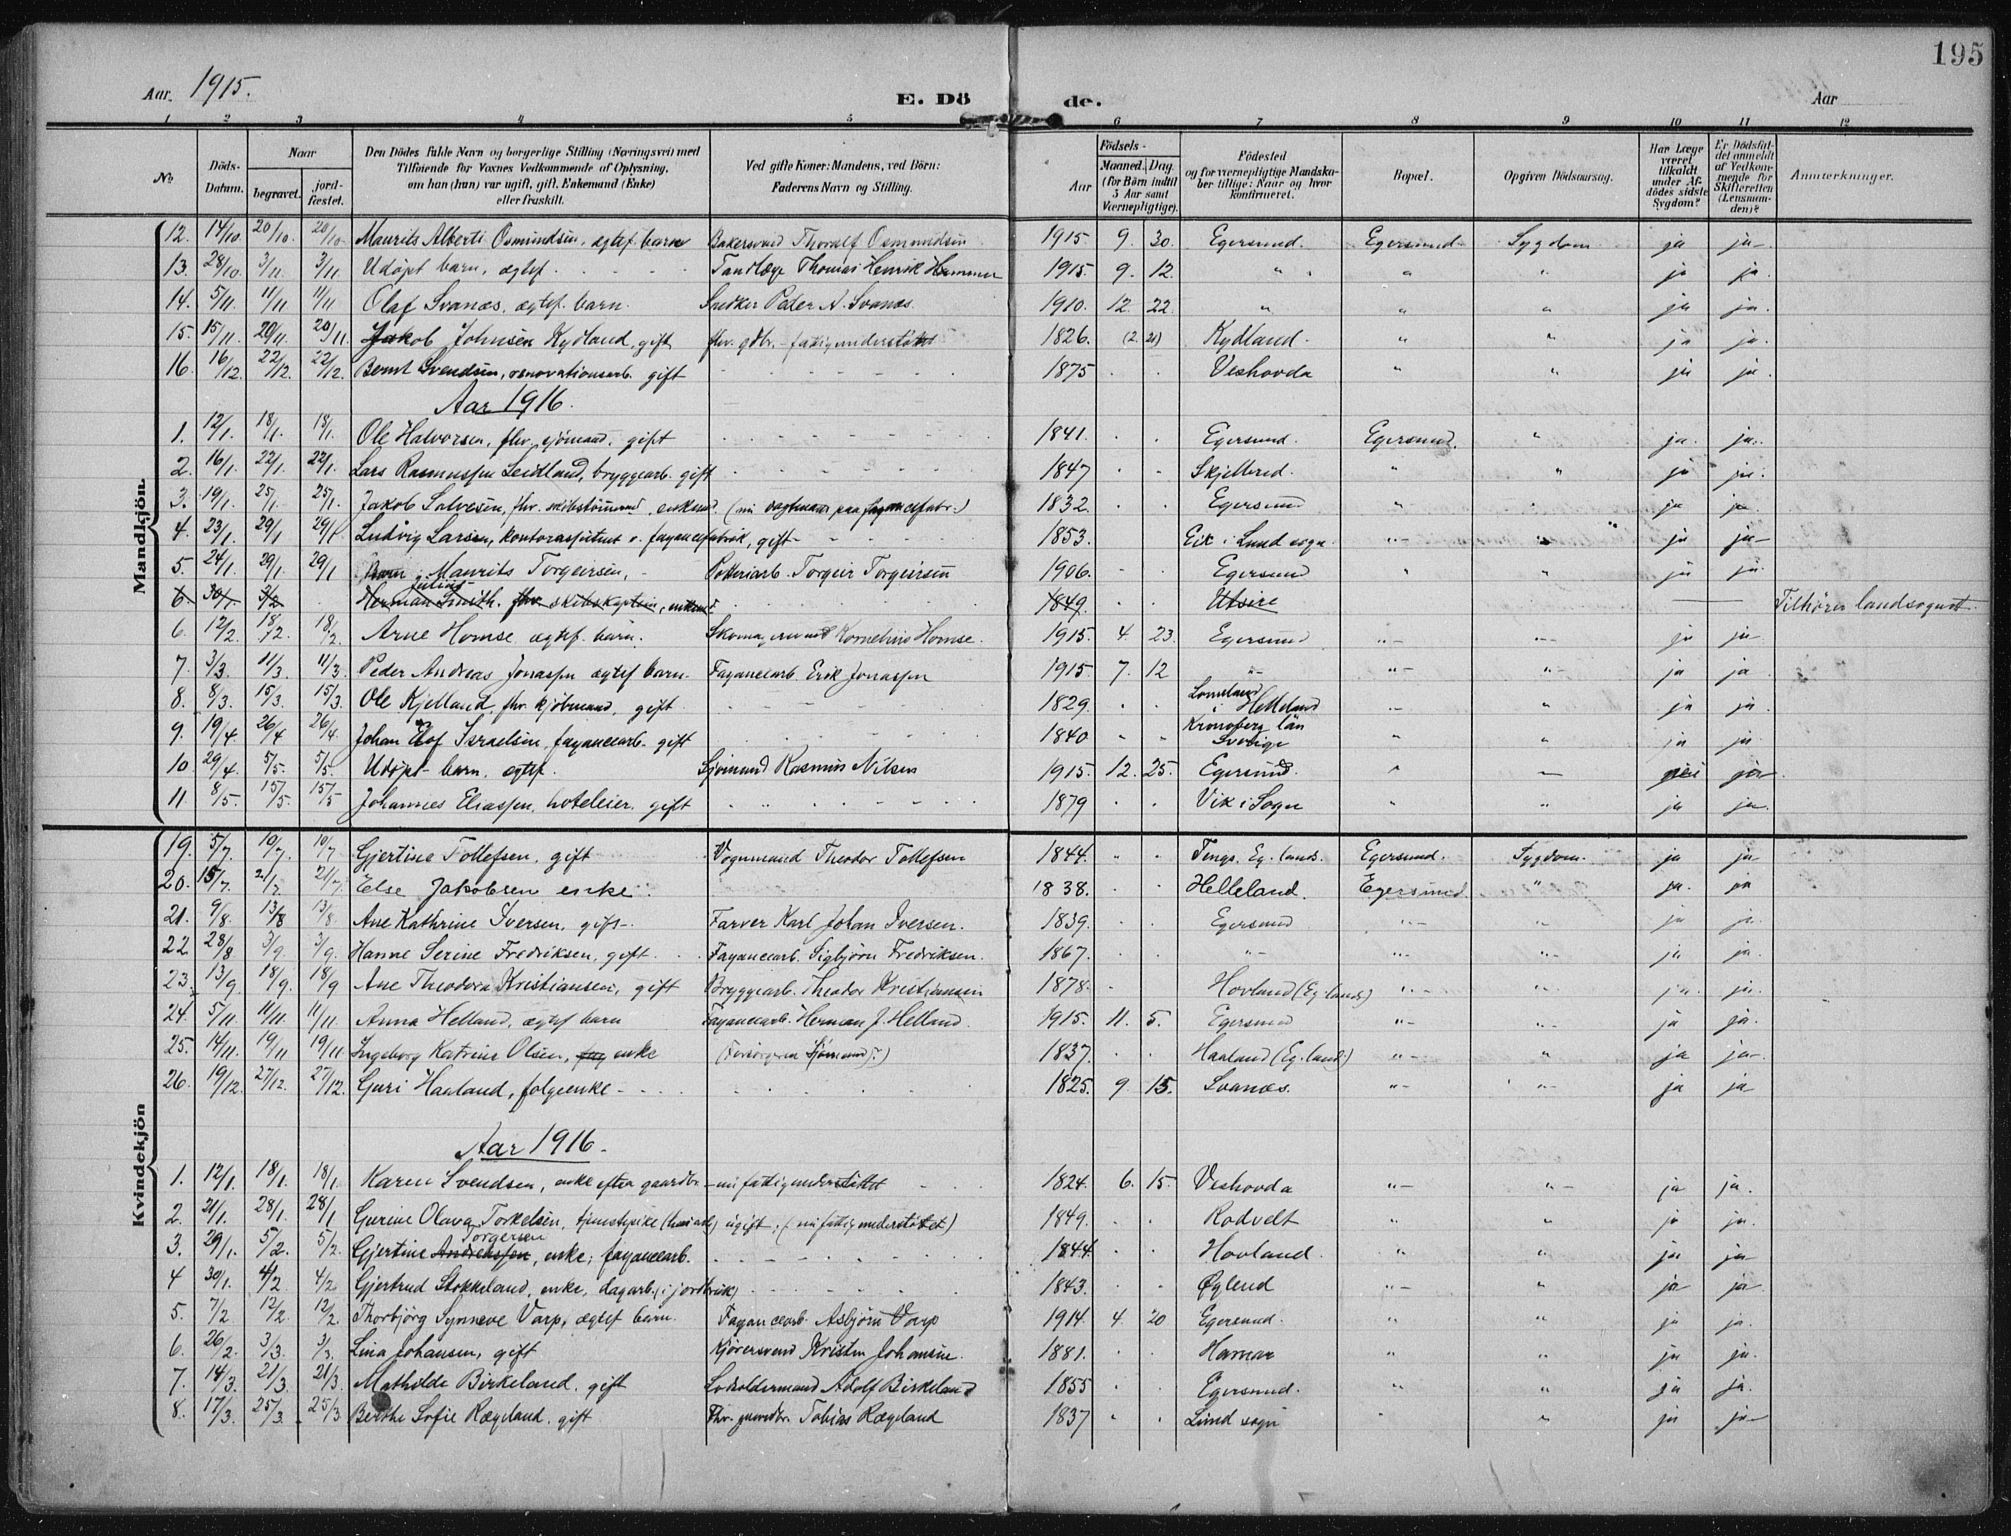 195
Aar 1915. E. Dö de. Aar
1 2 3 4 5 6 7 8 9 10 11 12
№ Döds-Datum. Naar begravet. jord-fæstet. Den Dödes fulde Navn og borgerlige Stilling (Næringsvei) med Tilföiende for Voxnes Vedkommende af Oplysning, om han (hun) var ugift, gift, Enkemand (Enke) eller fraskilt. Ved gifte Koner: Mandens, ved Börn: Faderens Navn og Stilling. Födsels- Aar Maaned. Dag. (for Börn indtil 5 Aar samt Værnepligtige). Födested og for værnepligtige Mandskaber tillige: Naar og hvor konfirmeret. Bopæl. Opgiven Dödsaarsag. Har Læge været tilkaldt under Afdödes sidste Sygdom? Er Dödsfaldet anmeldt af Vedkommende for Skifteretten (Lensmanden)? Anmærkninger.
Mandkjön.
12. 14/10 20/10. 20/10. Maurits Alberti Osmundsen, ægtef. barn Bakersvend Thoralf Osmundsen 1915 9. 30. Egersund. Egersund Sygdom ja ja
13. 28/10 3/11. 3/11. Udøpt barn, ægtef. Tandlæge Thomas Henrik Hammer 1915 9. 12. " " " " ja ja.
14. 5/11. 11/11 11/11 Olaf Svanæs, ægtef. barn. Snedker Peder A. Svanæs 1910. 12. 22. " " " ja ja.
15. 15/11. 20/11. 20/11. Jakob Johnsen Kydland, gift fhv. gdbr. - fattigunderstøttet 1826. (2. 21) Kydland. " " ja ja.
16. 16/12. 22/12. 22/12. Bernt Svendsen, renovationsarb. gift 1875 Veshovda " " ja ja.
Aar 1916.
1. 12/1. 18/1. 18/1. Ole Halvorsen, fhv. sjømand, gift 1841. Egersund. Egersund. " ja. ja.
2. 16/1. 22/1. 22/1. Lars Rasmussen Leidland, bryggearb. gift 1847 Skjelbred. " " ja ja.
3. 19/1. 25/1. 25/1. Jakob Salvesen, fhv. skibstømmermd, enkemd. (nu vagtmann paa fayancefabr.) 1832. Egersund " " ja ja
4. 23/1. 29/1 29/1 Ludvig Larsen, kontorassistent v. fayancefabrik, gift 1853. Eik i Lund sogn. " " ja ja
5. 24/1. 29/1. 29/1 Barn, Maurits Torgeirsen, Potteriarb. Torgeir Torgeirsen 1906. Egersund " " ja ja.
6. 30/1. 3/2 Julius Herman Smith. fhv. skibskaptein, enkemd. 1849. Utsire Tilhører landsognet.
6. 12/2. 18/2. 18/2. Arne Homse ægtef. barn. Skomagersvend Kornelius Homse. 1915. 4. 23. Egersund " " ja ja
7. 3/3. 11/3. 11/3. Peder Andreas Jonassen ægtef barn. Fayancearb Erik Jonassen 1915 7. 12 " " " ja ja
8. 8/3. 15/3. 15/3. Ole Kjelland, fhv. kjøbmand, gift 1829. i Helleland " " ja ja.
9. 19/4 26/4 26/4. Johan Elof Israelsen, fayancearb. gift 1840 Kronoberg län Sverige " " ja ja.
10. 29/4. 5/5. 5/5. Udøpt barn, ægtef. Sjømand Rasmus Nilsen 1915. 12. 25. Egersund. " " nei ja
11. 8/5. 15/5. 15/5 Johannes Eliassen, hoteleier, gift 1879 Vik i Sogn " " ja ja.
Kvindekjön
19. 5/7. 10/7. 10/7 Gjertine Tollefsen, gift Vognmand Theodor Tollefsen 1844. Tengs. Eg. lands. Egersund. Sygdom. ja ja
20. 15/7. 21/7 21/7. Else Jakobsen enke 1838. Helleland. Egersund. " ja. ja
21. 9/8. 13/8 13/8. Ane Kathrine Iversen, gift. Farver Karl Johan Iversen. 1839. Egersund " " ja ja.
22. 28/8 3/9. 3/9. Hanne Serine Fredriksen, gift. Fayancearb. Sigbjørn Fredriksen. 1867. " " " ja ja.
23. 13/9. 18/9. 18/9 Ane Theodora Kristiansen, gift Bryggearb. Theodor Kristiansen 1878. Hovland (Eg. lands) " " ja. ja.
24. 5/11. 11/11. 11/11. Anna Helland, ægtef barn Fayancearb. Herman J. Helland. 1915. 11. 5. Egersund " " ja ja.
25. 14/11. 19/11 19/11 Ingeborg Katrine Olsen, enke 1837. Haaland (Eg. land.) " " ja ja.
26. 19/12. 27/12. 27/12. Guri Haaland, folgeenke 1825. 9. 15. Svanæs. " " ja ja
Aar 1916.
1. 12/1. 18/1. 18/1. Karen Svendsen, enke efter gaardbr. - nu fattigunderstøttet 1824. 6. 15. Veshovda " " ja ja.
2. 21/1. 28/1. 28/1 Gurine Olava Torkelsen, tjenestepike (husarb) ugift. (nu fattigunderstøttet) 1849. Rodvelt " " ja ja.
3. 29/1. 5/2. 5/2. Gjertine Andreassen Torgersen, enke, fayancearb. 1844. Hovland. " " ja ja
4 30/1. 4/2 4/2 Gjertrud Stokkeland, enke, dagarb. (i jordbruk) 1843. Øglend " " ja ja
5. 7/2 12/2. 12/2. Thorbjørg Synneve Varp, ægtef barn. Fayancearb. Asbjørn Varp 1914. 4. 20 Egersund. " " ja ja.
6. 26/2. 3/3. 3/3. Lina Johansen, gift Kjøresvend Kristen Johansen. 1881. Hamar " " ja ja.
7. 14/3. 21/3 21/3. Mathilde Birkeland, gift Losoldermand Adolf Birkeland 1855 Egersund. " " ja ja.
8. 17/3. 25/3. 25/3 Berthe Sofie Rægeland, gift Fhv. gaardbr. Tobias Rægeland 1837 Lund sogn " ja ja